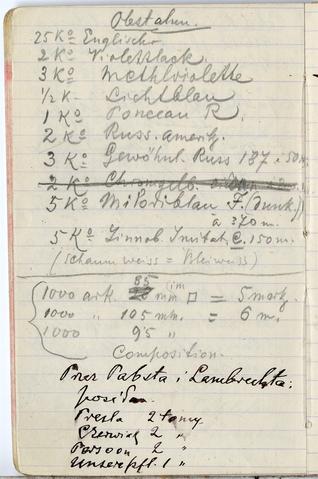 25 Ko Englischr
2 Ko Violettlack.
3 Ko Methlviolette
1/2 K- Lichtblau
1 Ko Ponceau R.
2 Ko Russ. amerik.
3 Ko Gewöhnl. Russ 187 i 50 m.
2 Ko Chromgelb.
5 Ko Miloriblau F. (dunk.)
à 370 m.
5 Ko Zinnob. Imitat. C. 150 m.
(Schaumweiss = Bleiweiss)
85
1000 ark. mm □ = 5 mark.
1000 " 105 mm. = 6 m.
1000 95 "
Composition.
Przez Pabsta i Lambrechta:
Presla 2 tomy
Czerwiak 2 "
Persoon 2 "
1 "